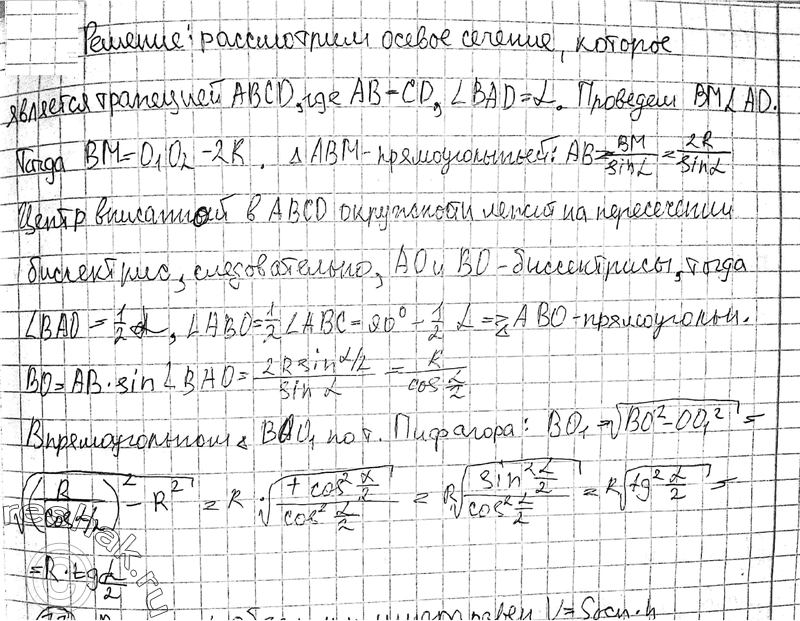 Решение: рассмотрим осевое сечение, которое
является трапецией ABCD, где AB=CD, ∠BAD=α. Проведем BM⊥AD.
Тогда BM=O₁O₂=2R. △ABM-прямоугольный: AB=BM/sinα=2R/sinα
Центр вписанной в ABCD окружности лежит на пересечении
биссектрис, следовательно, AO и BO-биссектрисы, тогда
∠BAO=1/2α, ∠ABO=1/2∠ABC=90°-1/2α=>△ABO-прямоугольн.
BO=AB·sin∠BAO=2Rsinα/2/sinα=R/cosα/2
В прямоугольном △BOO₁ по т. Пифагора: BO₁=√BO²-OO₁²=
√(R/cosα/2)²-R²=R·√1-cos²α/2/cos²α/2=R√sin²α/2/cos²α/2=R√tg²α/2=
=R·tgα/2
reshak.ru
V=Sосн·h